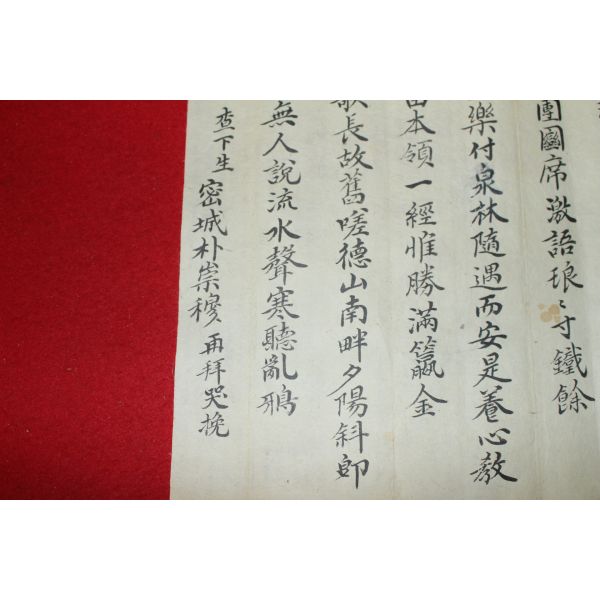 團圞席激語琅〻寸鐵餘
樂付泉林隨遇而安是養心教
本領一經惟勝滿籯金
長故舊嗟德山南畔夕陽斜
無人說流水聲寒聽亂鴉
査下生 密城朴崇穆 再拜哭挽